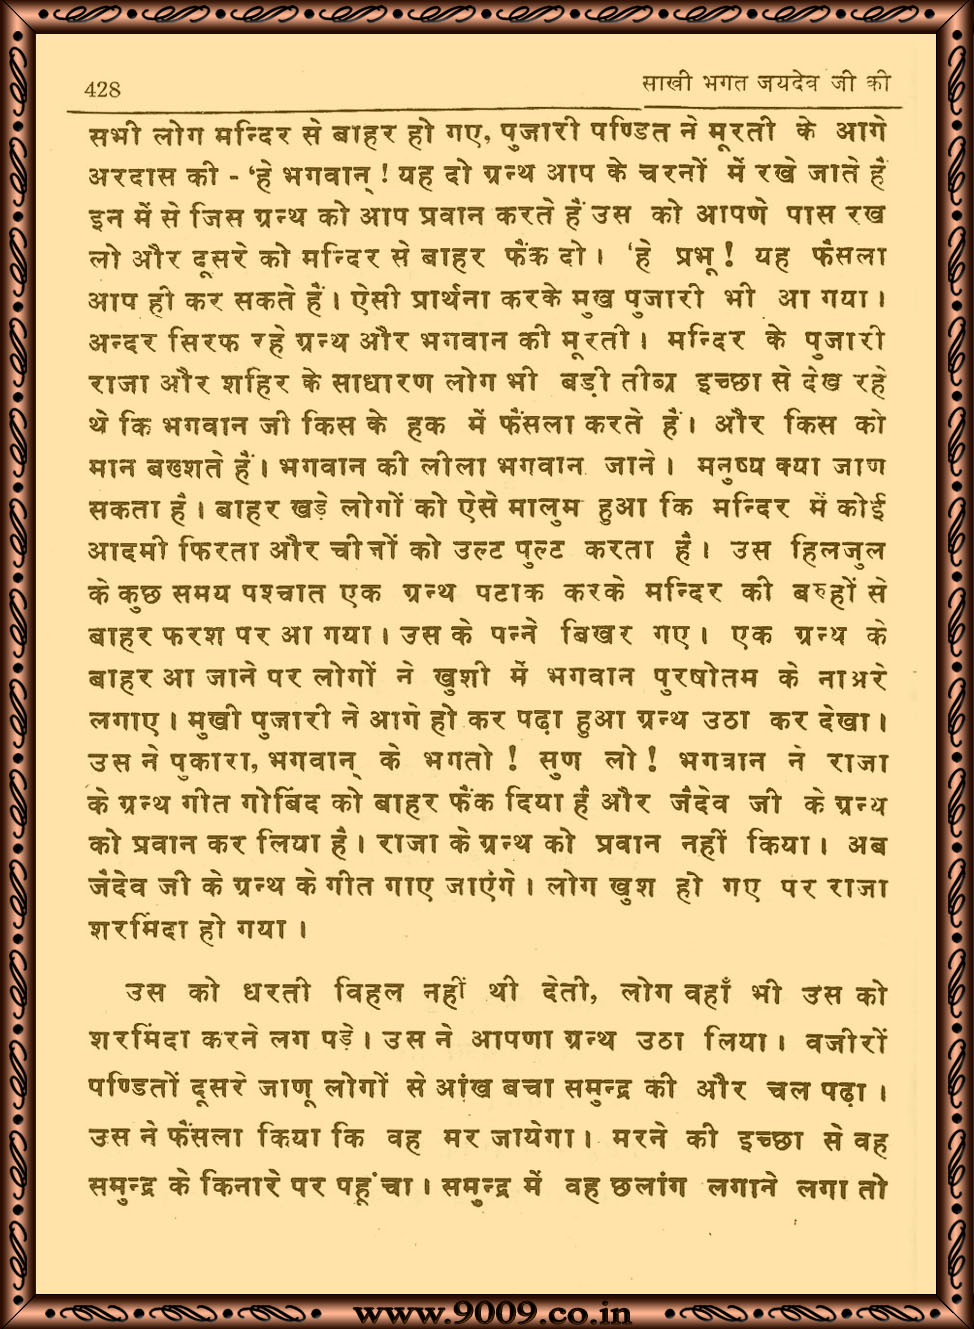 428
साखी भगत जयदेव जी की
सभी लोग मन्दिर से बाहर हो गए, पुजारी पण्डित ने मूरती के आगे
अरदास की - 'हे भगवान् ! यह दो ग्रन्थ आप के चरनों में रखे जाते हैं
इन में से जिस ग्रन्थ को आप प्रवान करते हैं उस को आपणे पास रख
लो और दूसरे को मन्दिर से बाहर फैंक दो । 'हे प्रभू ! यह फैसला
आप ही कर सकते हैं । ऐसी प्रार्थना करके मुख पुजारी भी आ गया ।
अन्दर सिरफ रहे ग्रन्थ और भगवान की मूरती । मन्दिर के पुजारी
राजा और शहिर के साधारण लोग भी बड़ी तीब्र इच्छा से देख रहे
थे कि भगवान जी किस के हक में फैंसला करते हैं । और किस को
मान बख्शते हैं । भगवान की लीला भगवान जाने । मनुष्य क्या जाण
सकता है । बाहर खड़े लोगों को ऐसे मालुम हुआ कि मन्दिर में कोई
आदमी फिरता और चीजों को उल्ट पुल्ट करता है । उस हिलजुल
के कुछ समय पश्चात एक ग्रन्थ पटाक करके मन्दिर की बरुहों से
बाहर फरश पर आ गया । उस के पन्ने बिखर गए । एक ग्रन्थ के
बाहर आ जाने पर लोगों ने खुशी में भगवान पुरषोतम के नाअरे
लगाए । मुखी पुजारी ने आगे हो कर पढ़ा हुआ ग्रन्थ उठा कर देखा ।
उस ने पुकारा, भगवान् के भगतो ! सुण लो ! भगवान ने राजा
के ग्रन्थ गीत गोबिंद को बाहर फैंक दिया है और जैदेव जी के ग्रन्थ
को प्रवान कर लिया है । राजा के ग्रन्थ को प्रवान नहीं किया । अब
जैदेव जी के ग्रन्थ के गीत गाए जाएंगे । लोग खुश हो गए पर राजा
शरमिंदा हो गया ।
उस को धरती विहल नहीं थी देती, लोग वहाँ भी उस को
शरमिंदा करने लग पड़े । उस ने आपणा ग्रन्थ उठा लिया । वजीरों
पण्डितों दूसरे जाणू लोगों से आंख बचा समुन्द्र की और चल पढ़ा ।
उस ने फैंसला किया कि वह मर जायेगा । मरने की इच्छा से वह
समुन्द्र के किनारे पर पहूंचा । समुन्द्र में वह छलांग लगाने लगा तो
www.9009.co.in